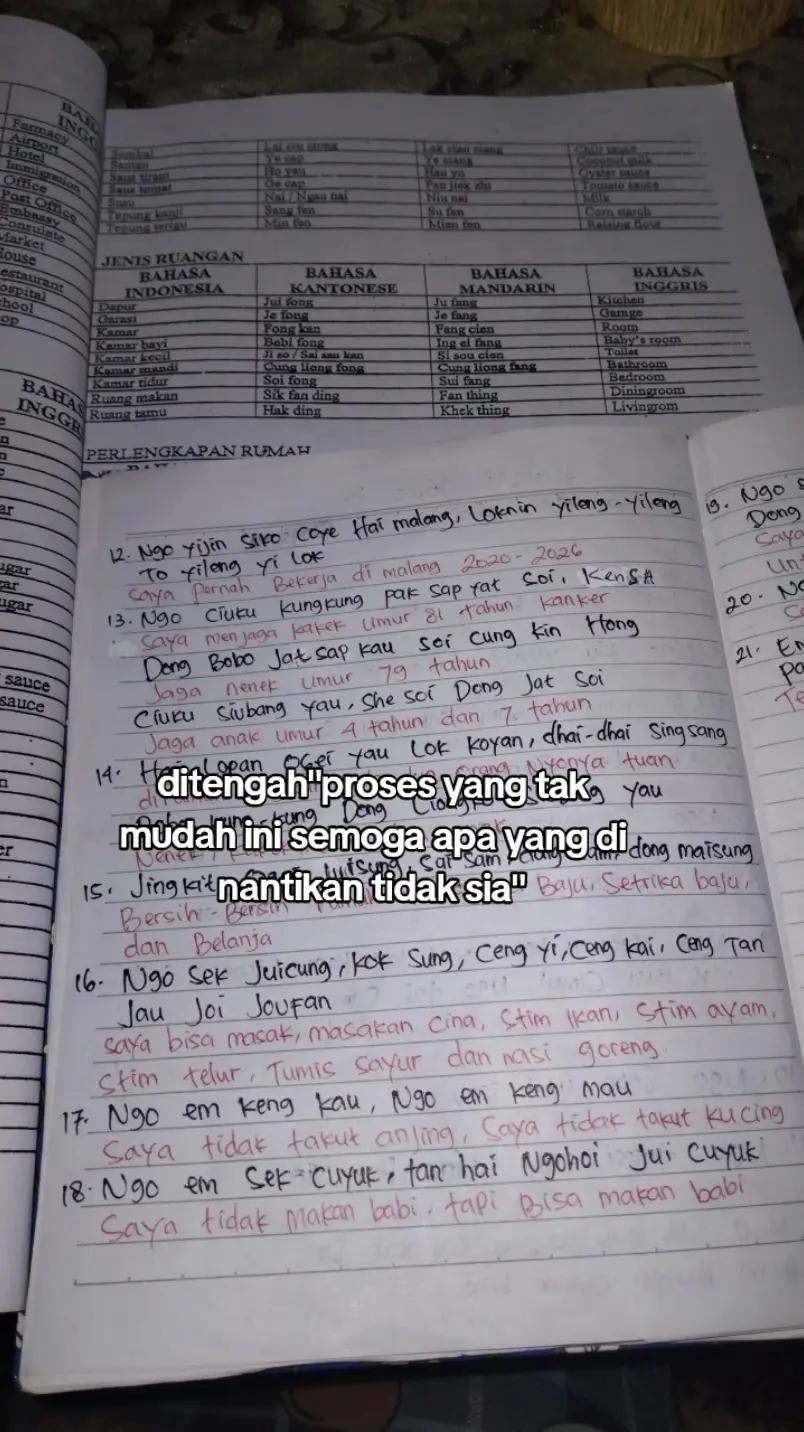 Farmacy
Airport
Hotel
Immigration
Office
Post Office
Embassy
Consulate
Market
House
Sambal
Santan Ye cap Ye ciang Coconut milk
Saus tiram Ho yau Hau yu Oyster sauce
Saus tomat Oe cap Fan jiek zhi Tomato sauce
Susu Nai / Ngau nai Niu nai Milk
Tepung kanji Sang fen Su fen Corn starch
Tepung terigu Min fen Mien fen Raising flour
JENIS RUANGAN
BAHASA INDONESIA BAHASA KANTONESE BAHASA MANDARIN BAHASA INGGRIS
Dapur Jui fong Ju fang Kitchen
Garasi Je fong Je fang Garage
Kamar Fong kan Fang cien Room
Kamar bayi Bebi fong Ing el fang Baby's room
Kamar kecil Ji so / Sai sau kan Si sou cien Toilet
Kamar mandi Cung liong fong Cung liong fang Bathroom
Kamar tidur Soi fong Sui fang Bedroom
Ruang makan Sik fan ding Fan thing Diningroom
Ruang tamu Hak ding Khek thing Livingrom
PERLENGKAPAN RUMAH
sauce
sauce
12. Ngo yijin siko coye Hai malang, Loknin yileng-yileng
To yileng yi Lok
Saya Pernah Bekerja di malang 2020-2026
13. Ngo Ciuku kungkung pak sap yat soi,
Saya menjaga kakek umur 81 tahun kanker
Dong Bobo Jat sap kau soi cung kin Hong
Jaga nenek umur 79 tahun
Ciuku Siubang yau, she soi Dong Jat Soi
Jaga anak umur 4 tahun dan 7 tahun
14. Lopan yau Lok koyan, dhai-dhai singsang
orang Nyonya tuan
ditengah"proses yang tak
Dong yau
mudah ini semoga apa yang di
15. Jingkit dong maisung
nantikan tidak sia"
Bersih-Bersih Baju, Setrika baju,
dan Belanja
16. Ngo Sek Juicung, kok Sung, Ceng yi, Ceng kai, Ceng Tan
Jau Joi Joufan
saya bisa masak, masakan cina, Stim ikan, Stim ayam,
Stim telur, Tumis sayur dan nasi goreng
17. Ngo em keng kau, Ngo em keng mau
Saya tidak takut anjing, Saya tidak takut kucing
18. Ngo em Sek cuyuk, tan hai Ngohoi Jui cuyuk
Saya tidak makan babi, tapi Bisa makan babi
19. Ngo
Dong
Saya
20.
21.